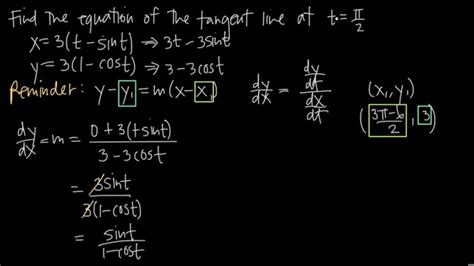 Find the equation of the tangent line at t₀=π/2
x=3(t-sint) ⇒ 3t-3sint
y=3(1-cost) ⇒ 3-3cost
Reminder: y-y₁=m(x-x₁)
dy/dx = (dy/dt)/(dx/dt)
(x₁,y₁)
((3π-6)/2, 3)
dy/dx=m= (0+3(+sint))/(3-3cost)
= 3sint/3(1-cost)
= sint/(1-cost)